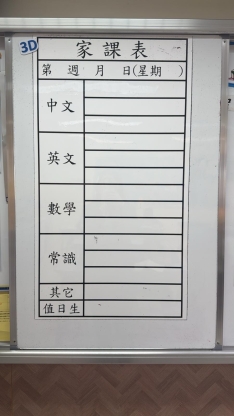 3D
家課表
第 週 月 日(星期 )
中文
英文
數學
常識
其它
值日生